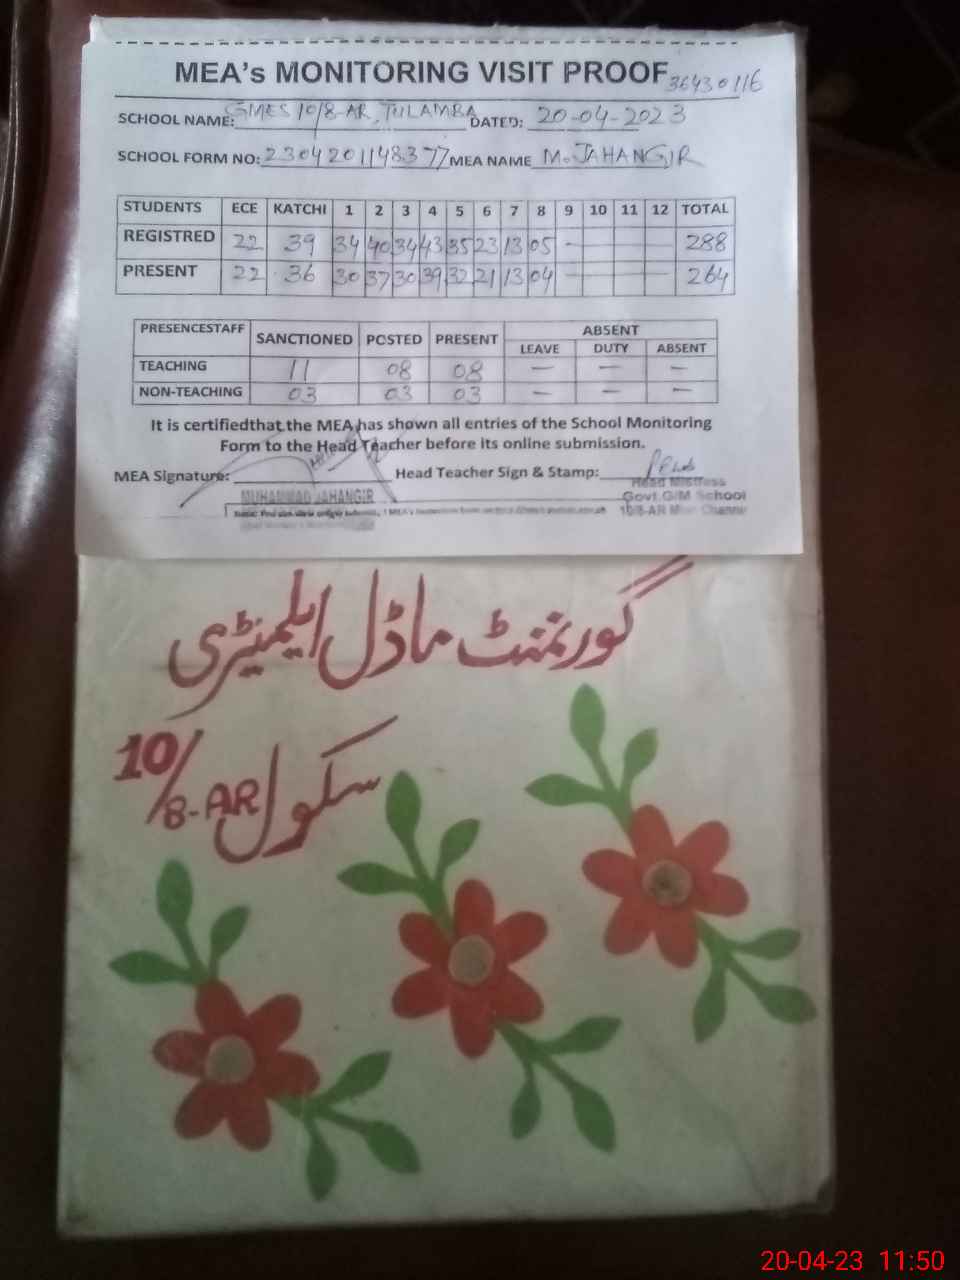 MEA's MONITORING VISIT PROOF 36430116
SCHOOL NAME: GMES 10/8-AR, TULAMBA DATED: 20-04-2023
SCHOOL FORM NO: 2304201148377 MEA NAME M. JAHANGIR
STUDENTS ECE KATCHI 1 2 3 4 5 6 7 8 9 10 11 12 TOTAL
REGISTRED 22 39 34 40 34 43 35 23 13 05 - 288
PRESENT 22 36 30 37 30 39 32 21 13 04 - 264
PRESENCESTAFF SANCTIONED POSTED PRESENT ABSENT
LEAVE DUTY ABSENT
TEACHING 11 08 08 - - -
NON-TEACHING 03 03 03 - - -
It is certifiedthat the MEA has shown all entries of the School Monitoring
Form to the Head Teacher before its online submission.
MEA Signature: Head Teacher Sign & Stamp:
MUHAMMAD JAHANGIR
Head Mistress
Govt. G/M School
10/8-AR Mian Channu
گورنمنٹ ماڈل ایلمینٹری
سکول 10/8-AR
20-04-23 11:50